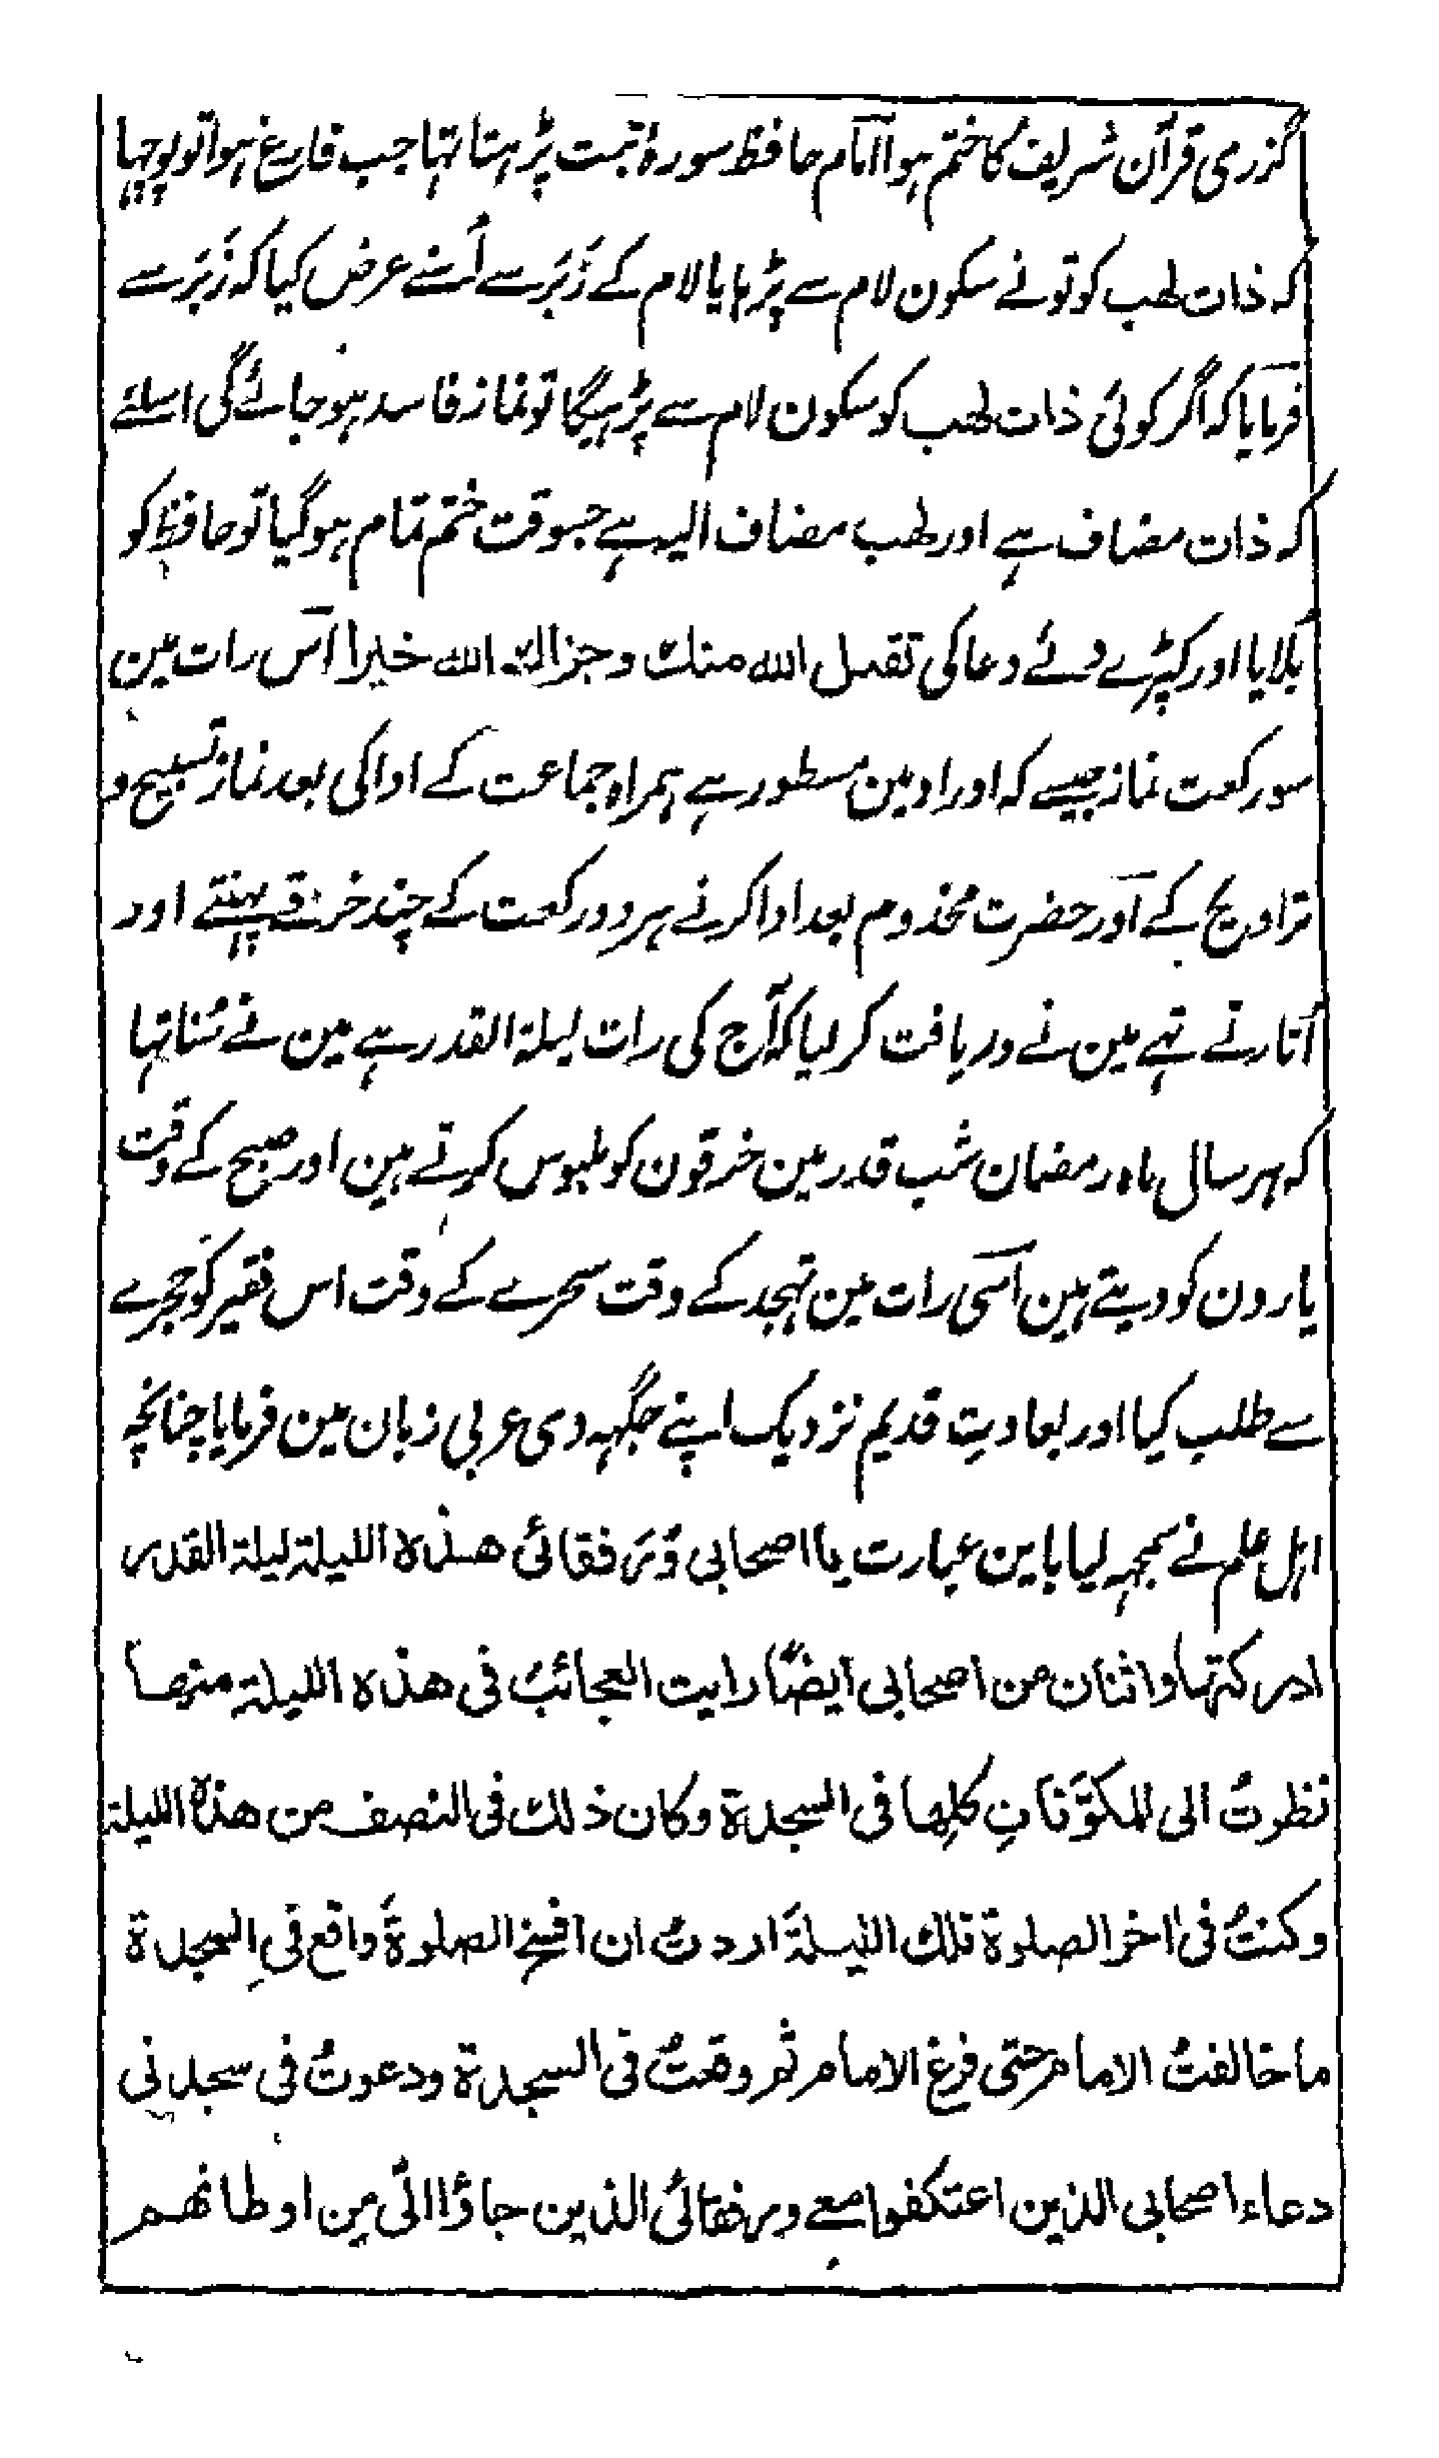 گزری قرآن شریف کا ختم ہوا امام حافظ سورۂ تبت پڑہتا تہا جب فارغ ہوا تو پوچہا
کہ ذات لھب کو تو نے سکون لام سے پڑہا یا لام کے زَبَر سے اُسنے عرض کیا کہ زَبَر سے
فرمایا کہ اگر کوئی ذات لھب کو سکون لام سے پڑہیگا تو نماز فاسد ہو جائے گی اسلئے
کہ ذات مضاف ہے اور لھب مضاف الیہ ہے جسوقت ختم تمام ہو گیا تو حافظ کو
بُلایا اور کپڑے دئے دعا کی تقبل اللہ منک و جزاک اللہ خیرا اس رات مین
سو رکعت نماز جیسے کہ اوراد مین مسطور ہے ہمراہ جماعت کے ادا کی بعد نماز تسبیح و
تراویح کے اور حضرت مخدوم بعد ادا کرنے ہر دو رکعت کے چند خرقے پہنتے اور
اُتارتے تہے مین نے دریافت کر لیا کہ آج کی رات لیلۃ القدر ہے مین نے سُنا تہا
کہ ہر سال ماہ رمضان شب قدر مین خرقون کو ملبوس کرتے ہین اور صبح کے وقت
یارون کو دیتے ہین اسی رات مین تہجد کے وقت سحرے کے وقت اس فقیر کو حجرے
سے طلب کیا اور بعادتِ قدیم نزدیک اپنے جگہہ دی عربی زبان مین فرمایا چنانچہ
اہل علم نے سمجہہ لیا باین عبارت یا اصحابی وَرُفقائی ھذہ اللیلۃ لیلۃ القدر
ادرکتہا واثنان من اصحابی ایضًا رایت العجائبَ فی ھذہ اللیلۃ منھا
نظرتُ الی المکوَّناتِ کلِھا فی السجدۃ وکان ذلک فی النصف من ھذہ اللیلۃ
وکنتُ فی اٰخر الصلوۃ تلک اللیلۃَ اردتُ ان افسخ الصلوۃَ واقع فی السجدۃ
ما خالفتُ الامام حتی فرغ الامام ثم وقعتُ فی السجدۃ ودعوتُ فی سجدتی
دعاء اصحابی الذین اعتکفوا معی ورفقائی الذین جاؤا الیّ من اوطانھم